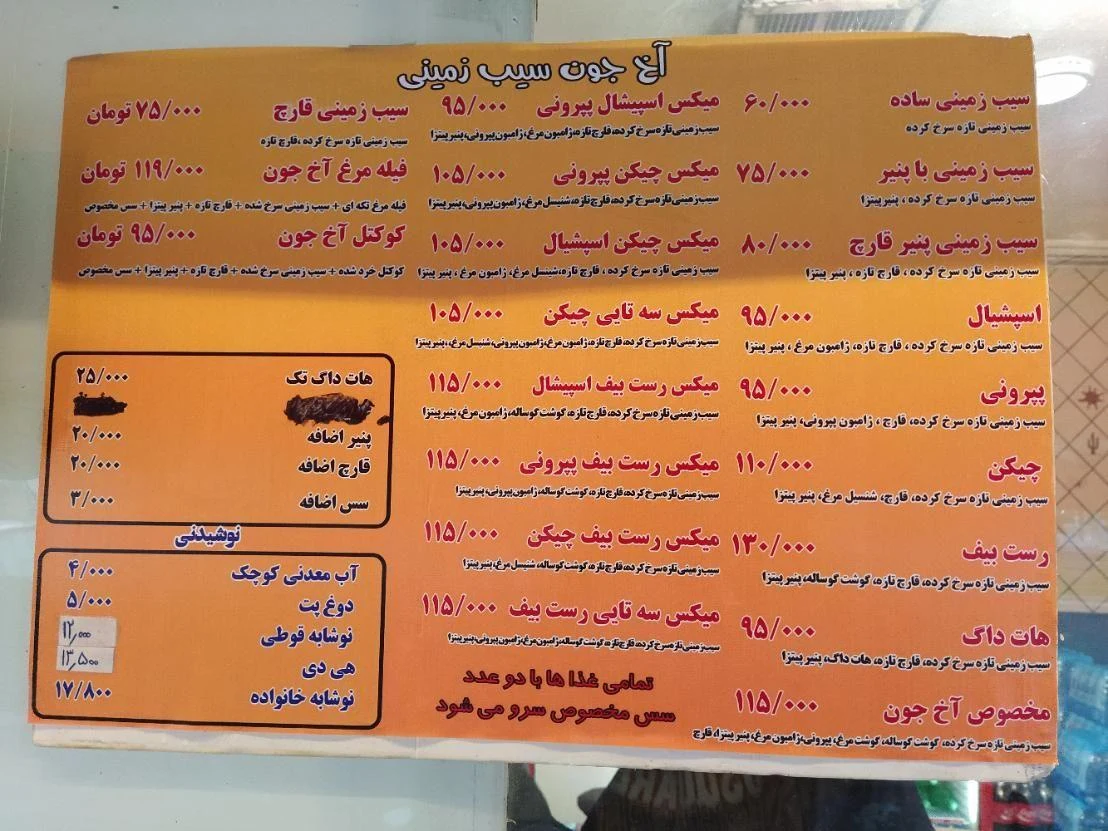 آخ جون سیب زمینی
سیب زمینی ساده ۶۰/۰۰۰
سیب زمینی تازه سرخ کرده
سیب زمینی با پنیر ۷۵/۰۰۰
سیب زمینی تازه سرخ کرده ، پنیرپیتزا
سیب زمینی پنیر قارچ ۸۰/۰۰۰
سیب زمینی تازه سرخ کرده ، قارچ تازه ، پنیر پیتزا
اسپشیال ۹۵/۰۰۰
سیب زمینی تازه سرخ کرده ، قارچ تازه، ژامبون مرغ ، پنیر پیتزا
پپرونی ۹۵/۰۰۰
سیب زمینی تازه سرخ کرده، قارچ ، ژامبون پپرونی ، پنیر پیتزا
چیکن ۱۱۰/۰۰۰
سیب زمینی تازه سرخ کرده، قارچ، شنسیل مرغ، پنیر پیتزا
رست بیف ۱۳۰/۰۰۰
سیب زمینی تازه سرخ کرده، قارچ تازه، گوشت گوساله، پنیر پیتزا
هات داگ ۹۵/۰۰۰
سیب زمینی تازه سرخ کرده، قارچ تازه، هات داگ، پنیر پیتزا
مخصوص آخ جون ۱۱۵/۰۰۰
سیب زمینی تازه سرخ کرده، گوشت گوساله، گوشت مرغ، پپرونی، ژامبون مرغ، پنیر پیتزا، قارچ
میکس اسپیشال پپرونی ۹۵/۰۰۰
سیب زمینی تازه سرخ کرده، قارچ تازه، ژامبون مرغ، ژامبون پپرونی، پنیر پیتزا
میکس چیکن پپرونی ۱۰۵/۰۰۰
سیب زمینی تازه سرخ کرده، قارچ تازه، شنیسل مرغ، ژامبون پپرونی، پنیر پیتزا
میکس چیکن اسپشیال ۱۰۵/۰۰۰
سیب زمینی تازه سرخ کرده ، قارچ تازه،شینسل مرغ، ژامبون مرغ ، پنیر پیتزا
میکس سه تایی چیکن ۱۰۵/۰۰۰
سیب زمینی تازه سرخ کرده، قارچ تازه، ژامبون مرغ، ژامبون پپرونی، شنیسل مرغ، پنیر پیتزا
میکس رست بیف اسپیشال ۱۱۵/۰۰۰
سیب زمینی تازه سرخ کرده، قارچ تازه، گوشت گوساله، ژامبون مرغ، پنیر پیتزا
میکس رست بیف پپرونی ۱۱۵/۰۰۰
سیب زمینی تازه سرخ کرده، قارچ تازه، گوشت گوساله، ژامبون پپرونی، پنیر پیتزا
میکس رست بیف چیکن ۱۱۵/۰۰۰
سیب زمینی تازه سرخ کرده، قارچ تازه، گوشت گوساله، شنیسل مرغ، پنیر پیتزا
میکس سه تایی رست بیف ۱۱۵/۰۰۰
سیب زمینی تازه سرخ کرده، قارچ تازه، گوشت گوساله، ژامبون مرغ، ژامبون پپرونی، پنیر پیتزا
تمامی غذا ها با دو عدد
سس مخصوص سرو می شود
سیب زمینی قارچ ۷۵/۰۰۰ تومان
سیب زمینی تازه سرخ کرده ، قارچ تازه
فیله مرغ آخ جون ۱۱۹/۰۰۰ تومان
فیله مرغ تکه ای + سیب زمینی سرخ شده + قارچ تازه + پنیر پیتزا + سس مخصوص
کوکتل آخ جون ۹۵/۰۰۰ تومان
کوکتل خرد شده + سیب زمینی سرخ شده + قارچ تازه + پنیر پیتزا + سس مخصوص
هات داگ تک ۲۵/۰۰۰
پنیر اضافه ۲۰/۰۰۰
قارچ اضافه ۲۰/۰۰۰
سس اضافه ۳/۰۰۰
نوشیدنی
آب معدنی کوچک ۴/۰۰۰
دوغ پت ۵/۰۰۰
نوشابه قوطی ۱۲,۰۰۰
هی دی ۱۳,۵۰۰
نوشابه خانواده ۱۷/۸۰۰